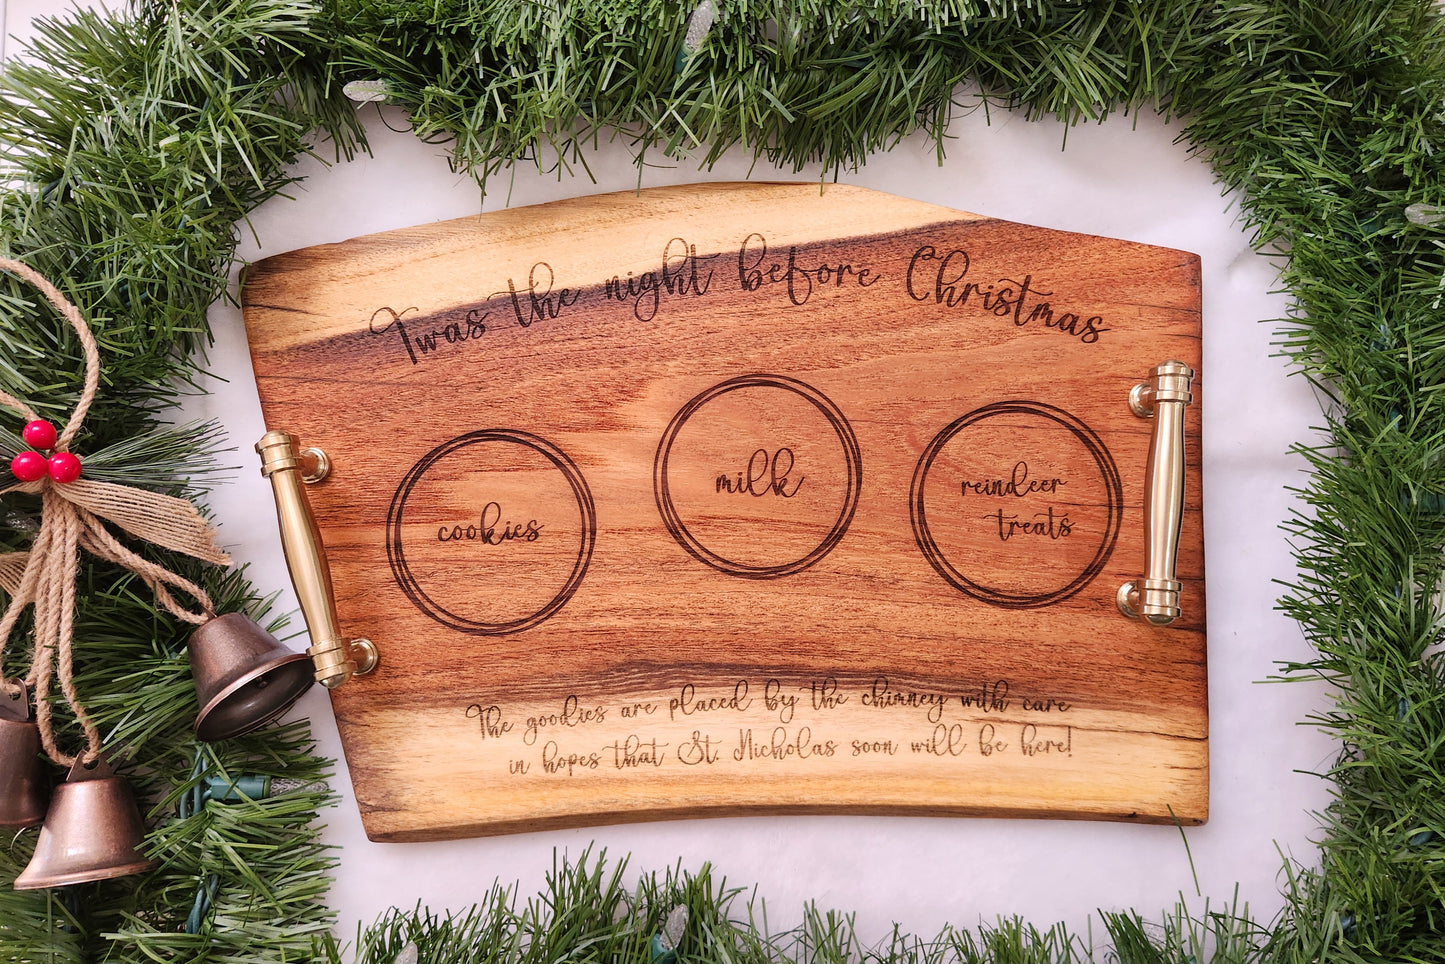 Twas the night before Christmas
cookies
milk
reindeer
treats
The goodies are placed by the chimney with care
in hopes that St. Nicholas soon will be here!